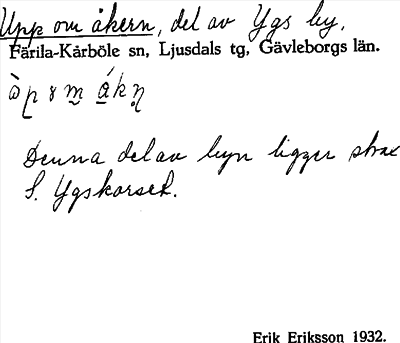 Upp om åkern, del av Ygs by,
Färila-Kårböle sn, Ljusdals tg, Gävleborgs län.
Denna del av byn ligger strax
S. Ygskorset.
Erik Eriksson 1932.